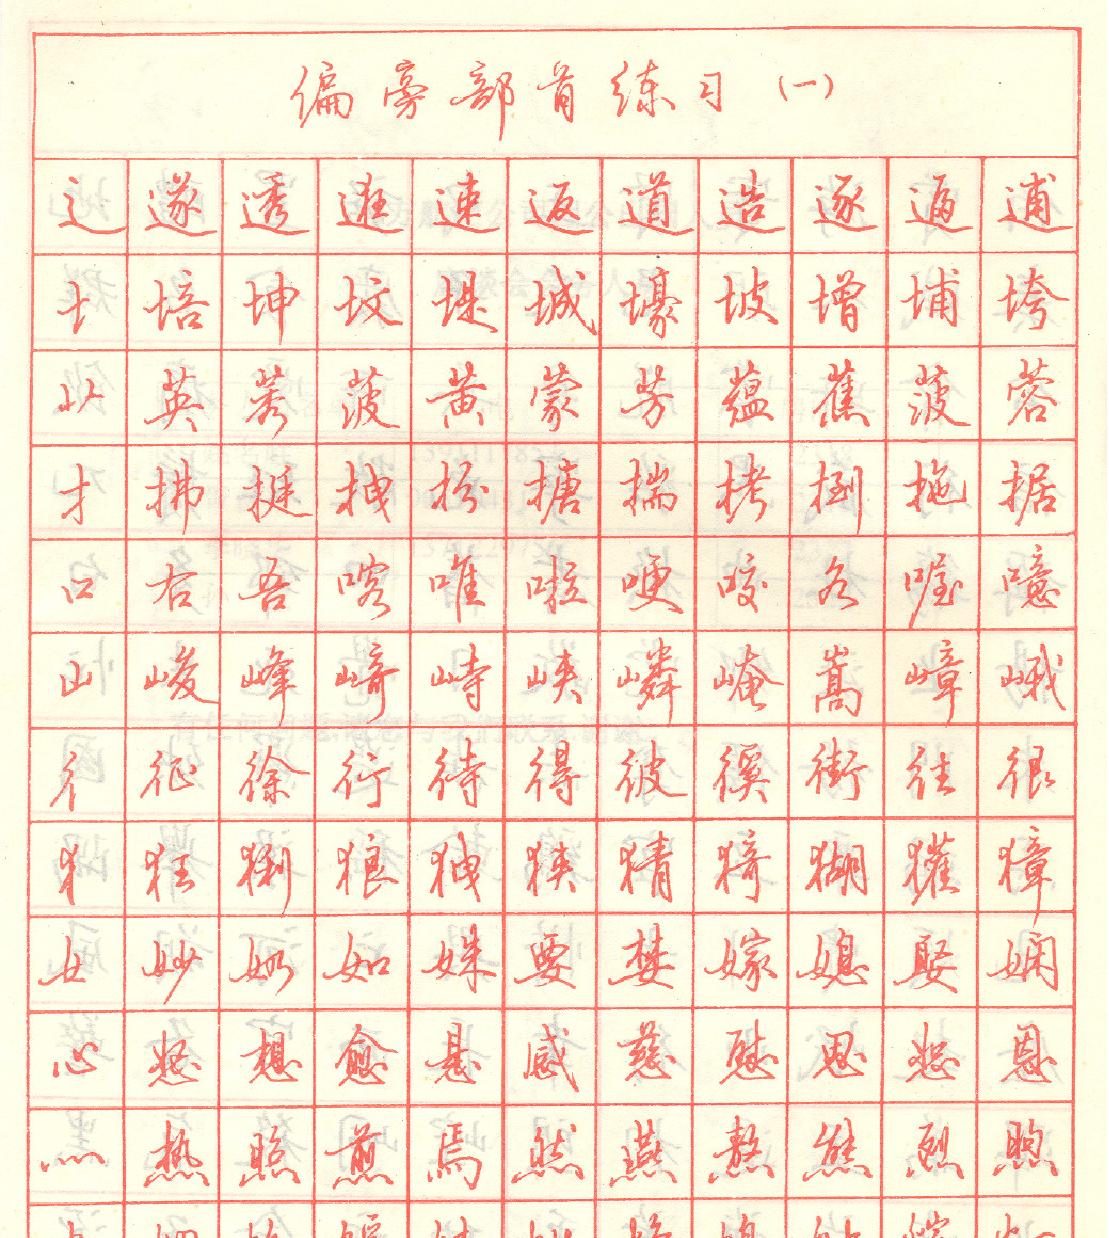 偏旁部首练习(一)
辶 遂 透 逛 速 返 道 造 逐 逼 逋
土 培 坤 坟 堤 城 壕 坡 增 埔 垮
艹 英 菠 黄 蒙 芳 蕴 蕉 菠 蓉
扌 拂 挺 拽 扮 搪 揣 拷 捌 拖 据
口 右 吾 喀 唯 啦 哽 咬 名 喔 噫
山 峻 峰 崎 峙 峡 嶙 崦 嵩 嶂 峨
彳 征 徐 行 待 得 彼 徯 街 往 很
犭 狂 猁 狼 狭 猜 猗 猢 獾 獐
女 妙 如 姝 要 婪 嫁 媳 娶 娴
心 怒 想 愈 悬 感 慈 慰 思 恕 恩
灬 热 照 煎 焉 然 燕 熬 熊 烈 煦